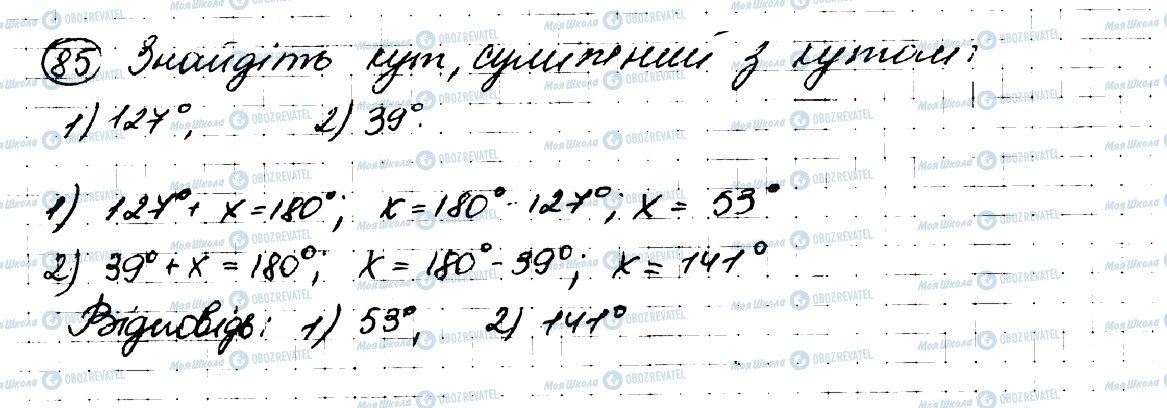 85 Знайдіть кут, суміжний з кутом:
1) 127°; 2) 39°.
1) 127° + x = 180°; x = 180° - 127°; x = 53°
2) 39° + x = 180°; x = 180° - 39°; x = 141°
Відповідь: 1) 53°, 2) 141°